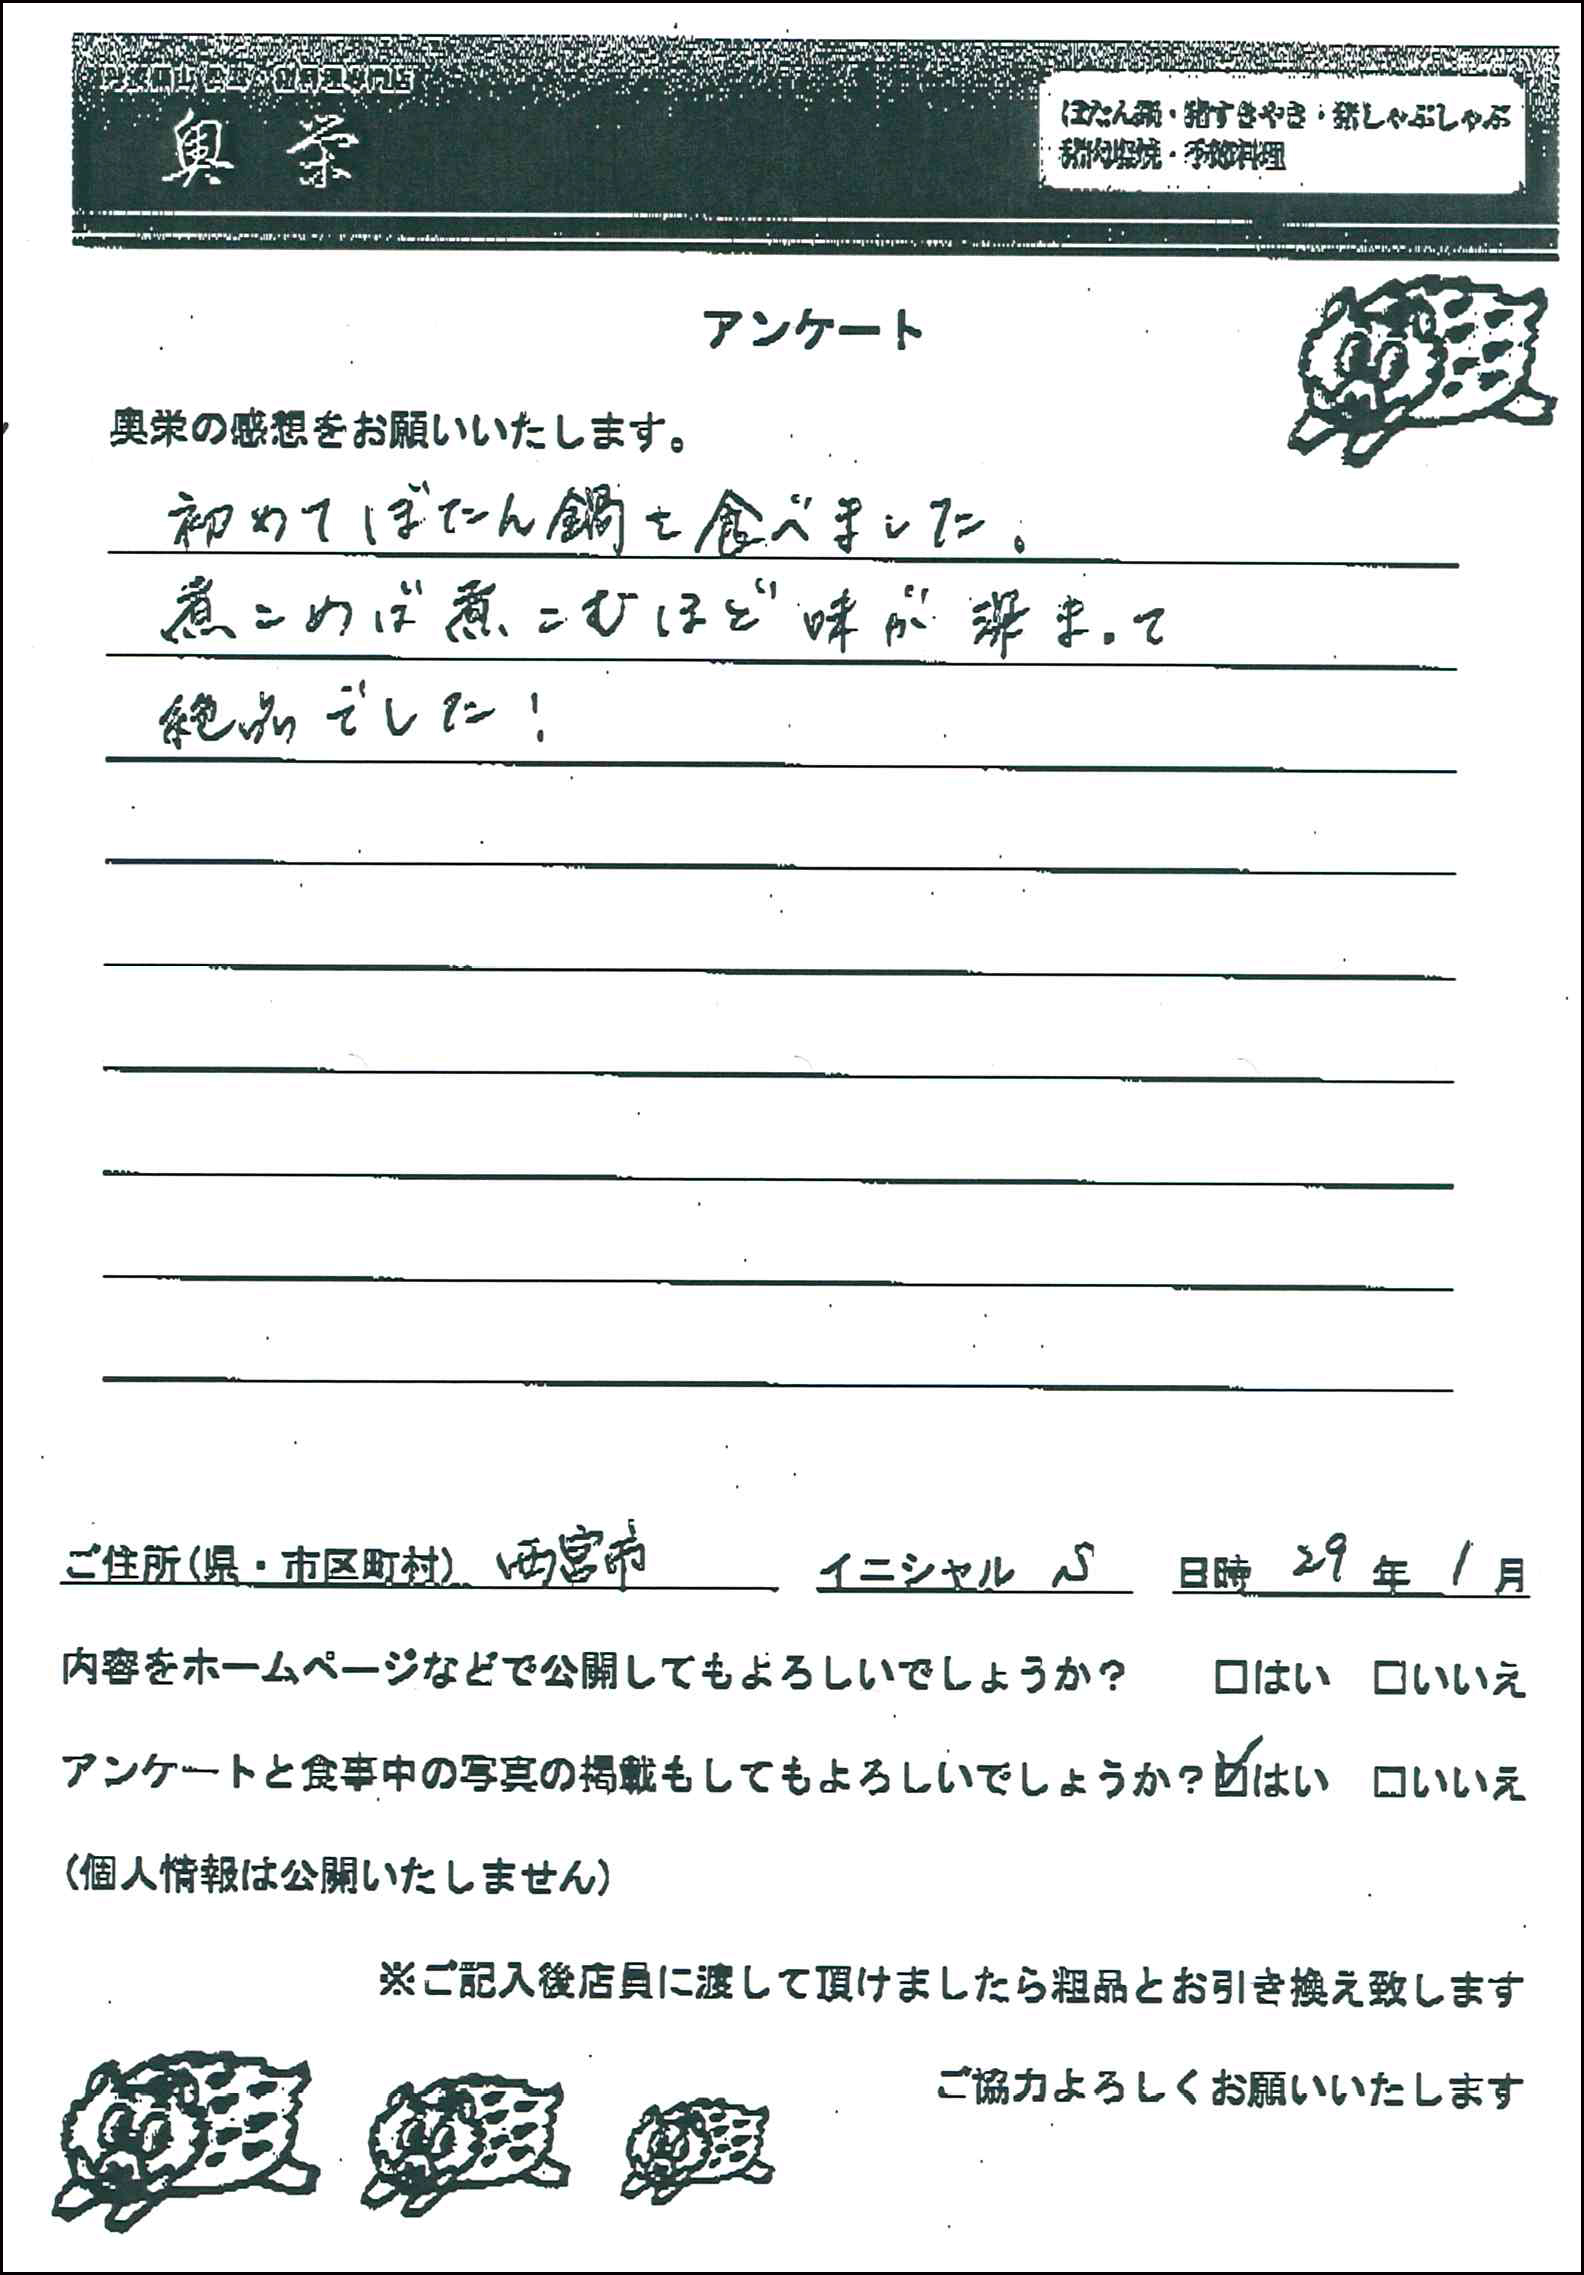 奥栄
ぼたん鍋・猪すきやき・猪しゃぶしゃぶ
猪肉塩焼・季節料理
アンケート
奥栄の感想をお願いいたします。
初めてぼたん鍋を食べました。
煮こめば煮こむほど味が染まって
絶品でした!
ご住所(県・市区町村) 西宮市 イニシャル S 日時 29年 1月
内容をホームページなどで公開してもよろしいでしょうか? □はい □いいえ
アンケートと食事中の写真の掲載もしてもよろしいでしょうか?☑はい □いいえ
(個人情報は公開いたしません)
※ご記入後店員に渡して頂けましたら粗品とお引き換え致します
ご協力よろしくお願いいたします